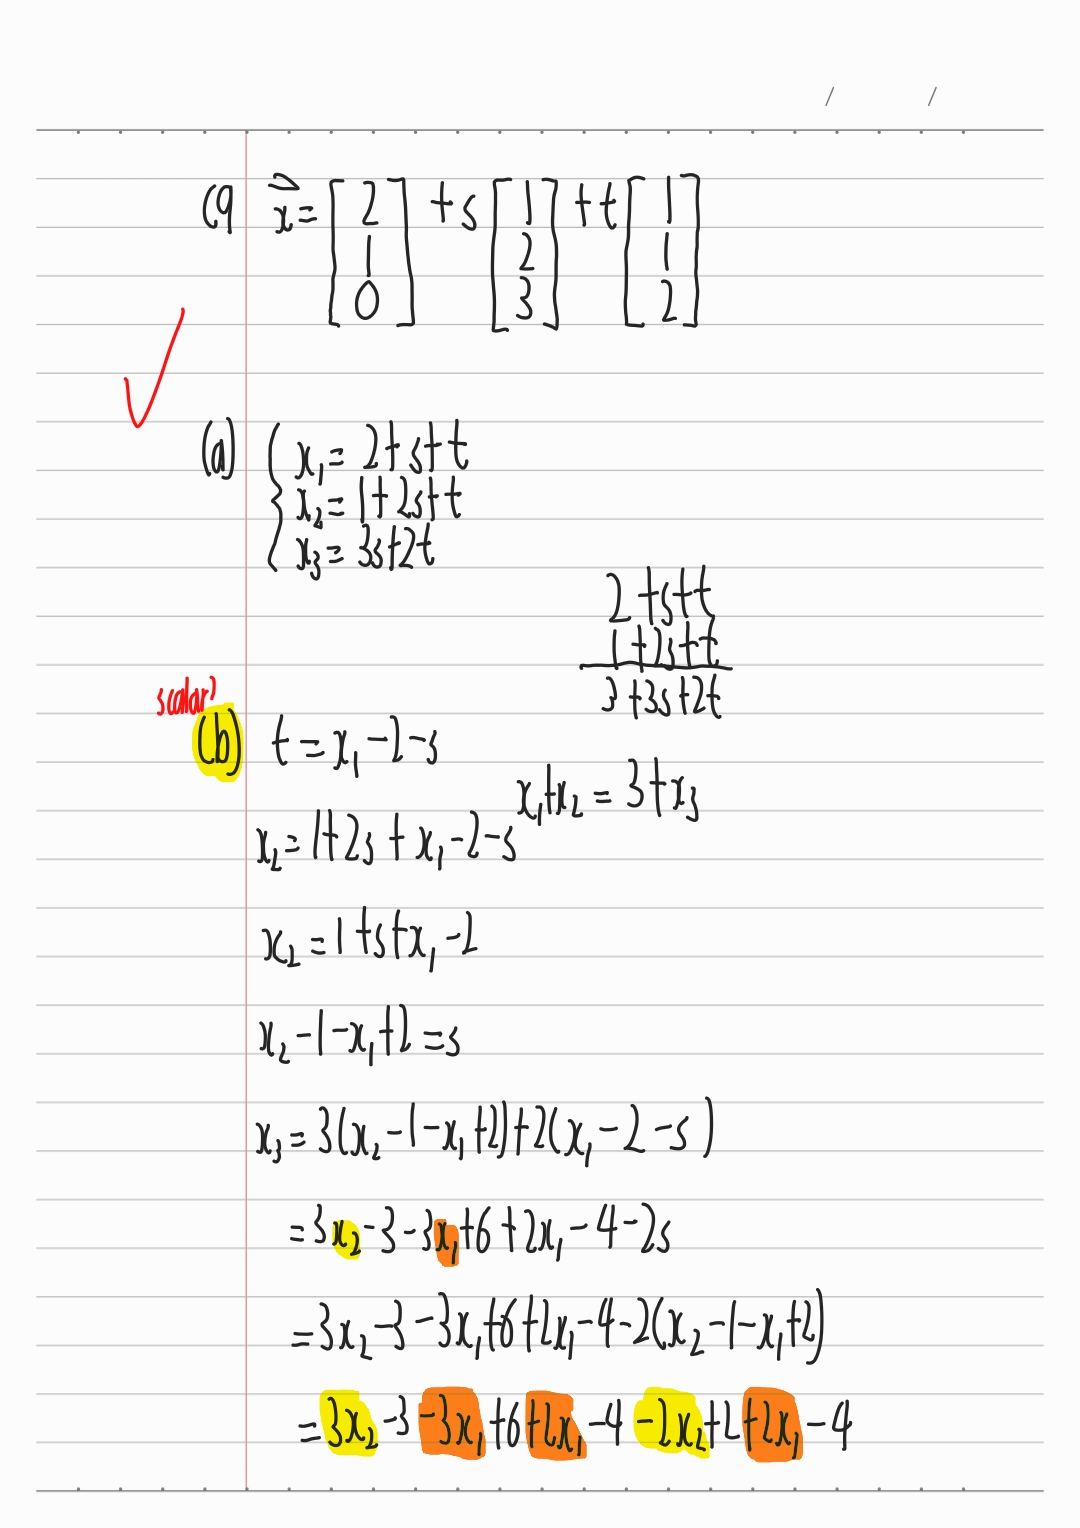 / /
(9 x⃗ = [2 1 0] + s [1 2 3] + t [1 1 2]
(a) { x₁ = 2+s+t
x₂ = 1+2s+t
x₃ = 3s+2t
2+s+t
1+2s+t
3+3s+2t
scalar?
(b) t = x₁-2-s
x₁+x₂ = 3+x₃
x₂ = 1+2s+x₁-2-s
x₂ = 1+s+x₁-2
x₂-1-x₁+2 = s
x₃ = 3(x₂-1-x₁+2)+2(x₁-2-s)
= 3x₂-3-3x₁+6+2x₁-4-2s
= 3x₂-3-3x₁+6+2x₁-4-2(x₂-1-x₁+2)
= 3x₂-3-3x₁+6+2x₁-4-2x₂+2+2x₁-4